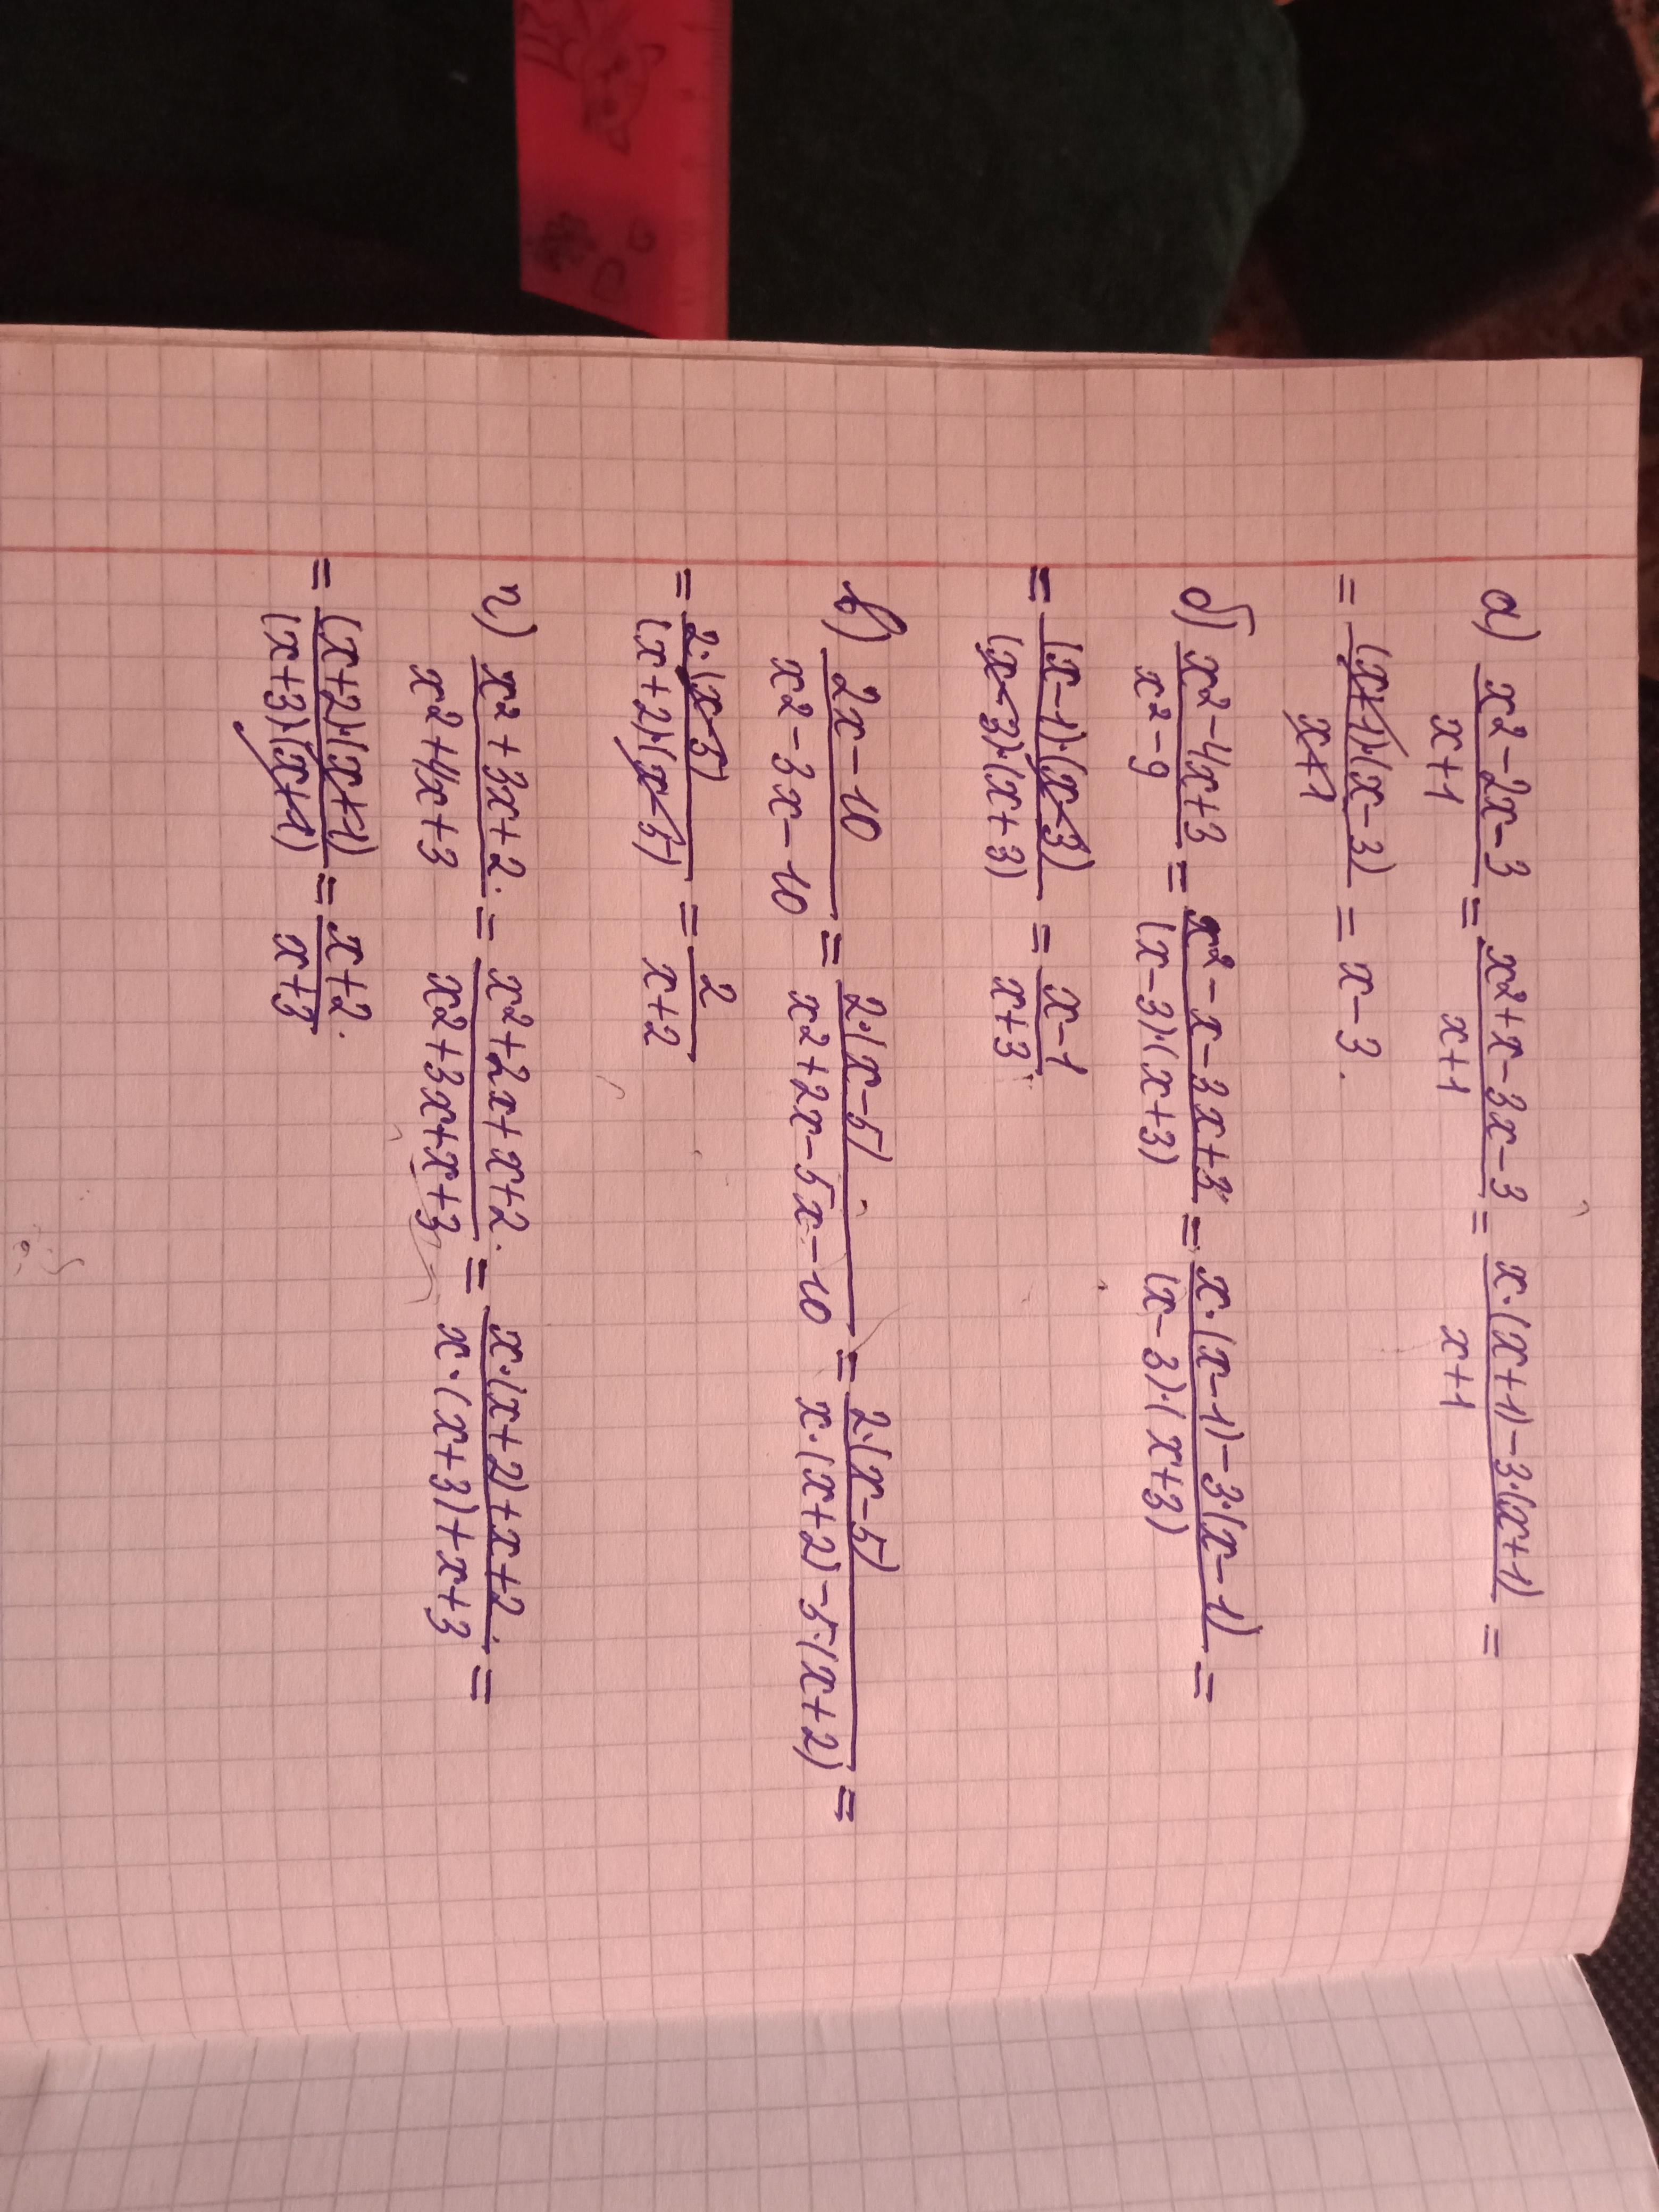 а) (x² - 2x - 3)/(x+1) = (x² + x - 3x - 3)/(x+1) = (x·(x+1) - 3·(x+1))/(x+1) =
= ((x+1)·(x-3))/(x+1) = x - 3.
б) (x² - 4x + 3)/(x² - 9) = (x² - x - 3x + 3)/((x-3)·(x+3)) = (x·(x-1) - 3·(x-1))/((x-3)·(x+3)) =
= ((x-1)·(x-3))/((x-3)·(x+3)) = (x-1)/(x+3)
в) (2x - 10)/(x² - 3x - 10) = (2·(x-5))/(x² + 2x - 5x - 10) = (2·(x-5))/(x·(x+2) - 5·(x+2)) =
= (2·(x-5))/((x+2)·(x-5)) = 2/(x+2)
г) (x² + 3x + 2)/(x² + 4x + 3) = (x² + 2x + x + 2)/(x² + 3x + x + 3) = (x·(x+2) + x + 2)/(x·(x+3) + x + 3) =
= ((x+2)·(x+1))/((x+3)·(x+1)) = (x+2)/(x+3).